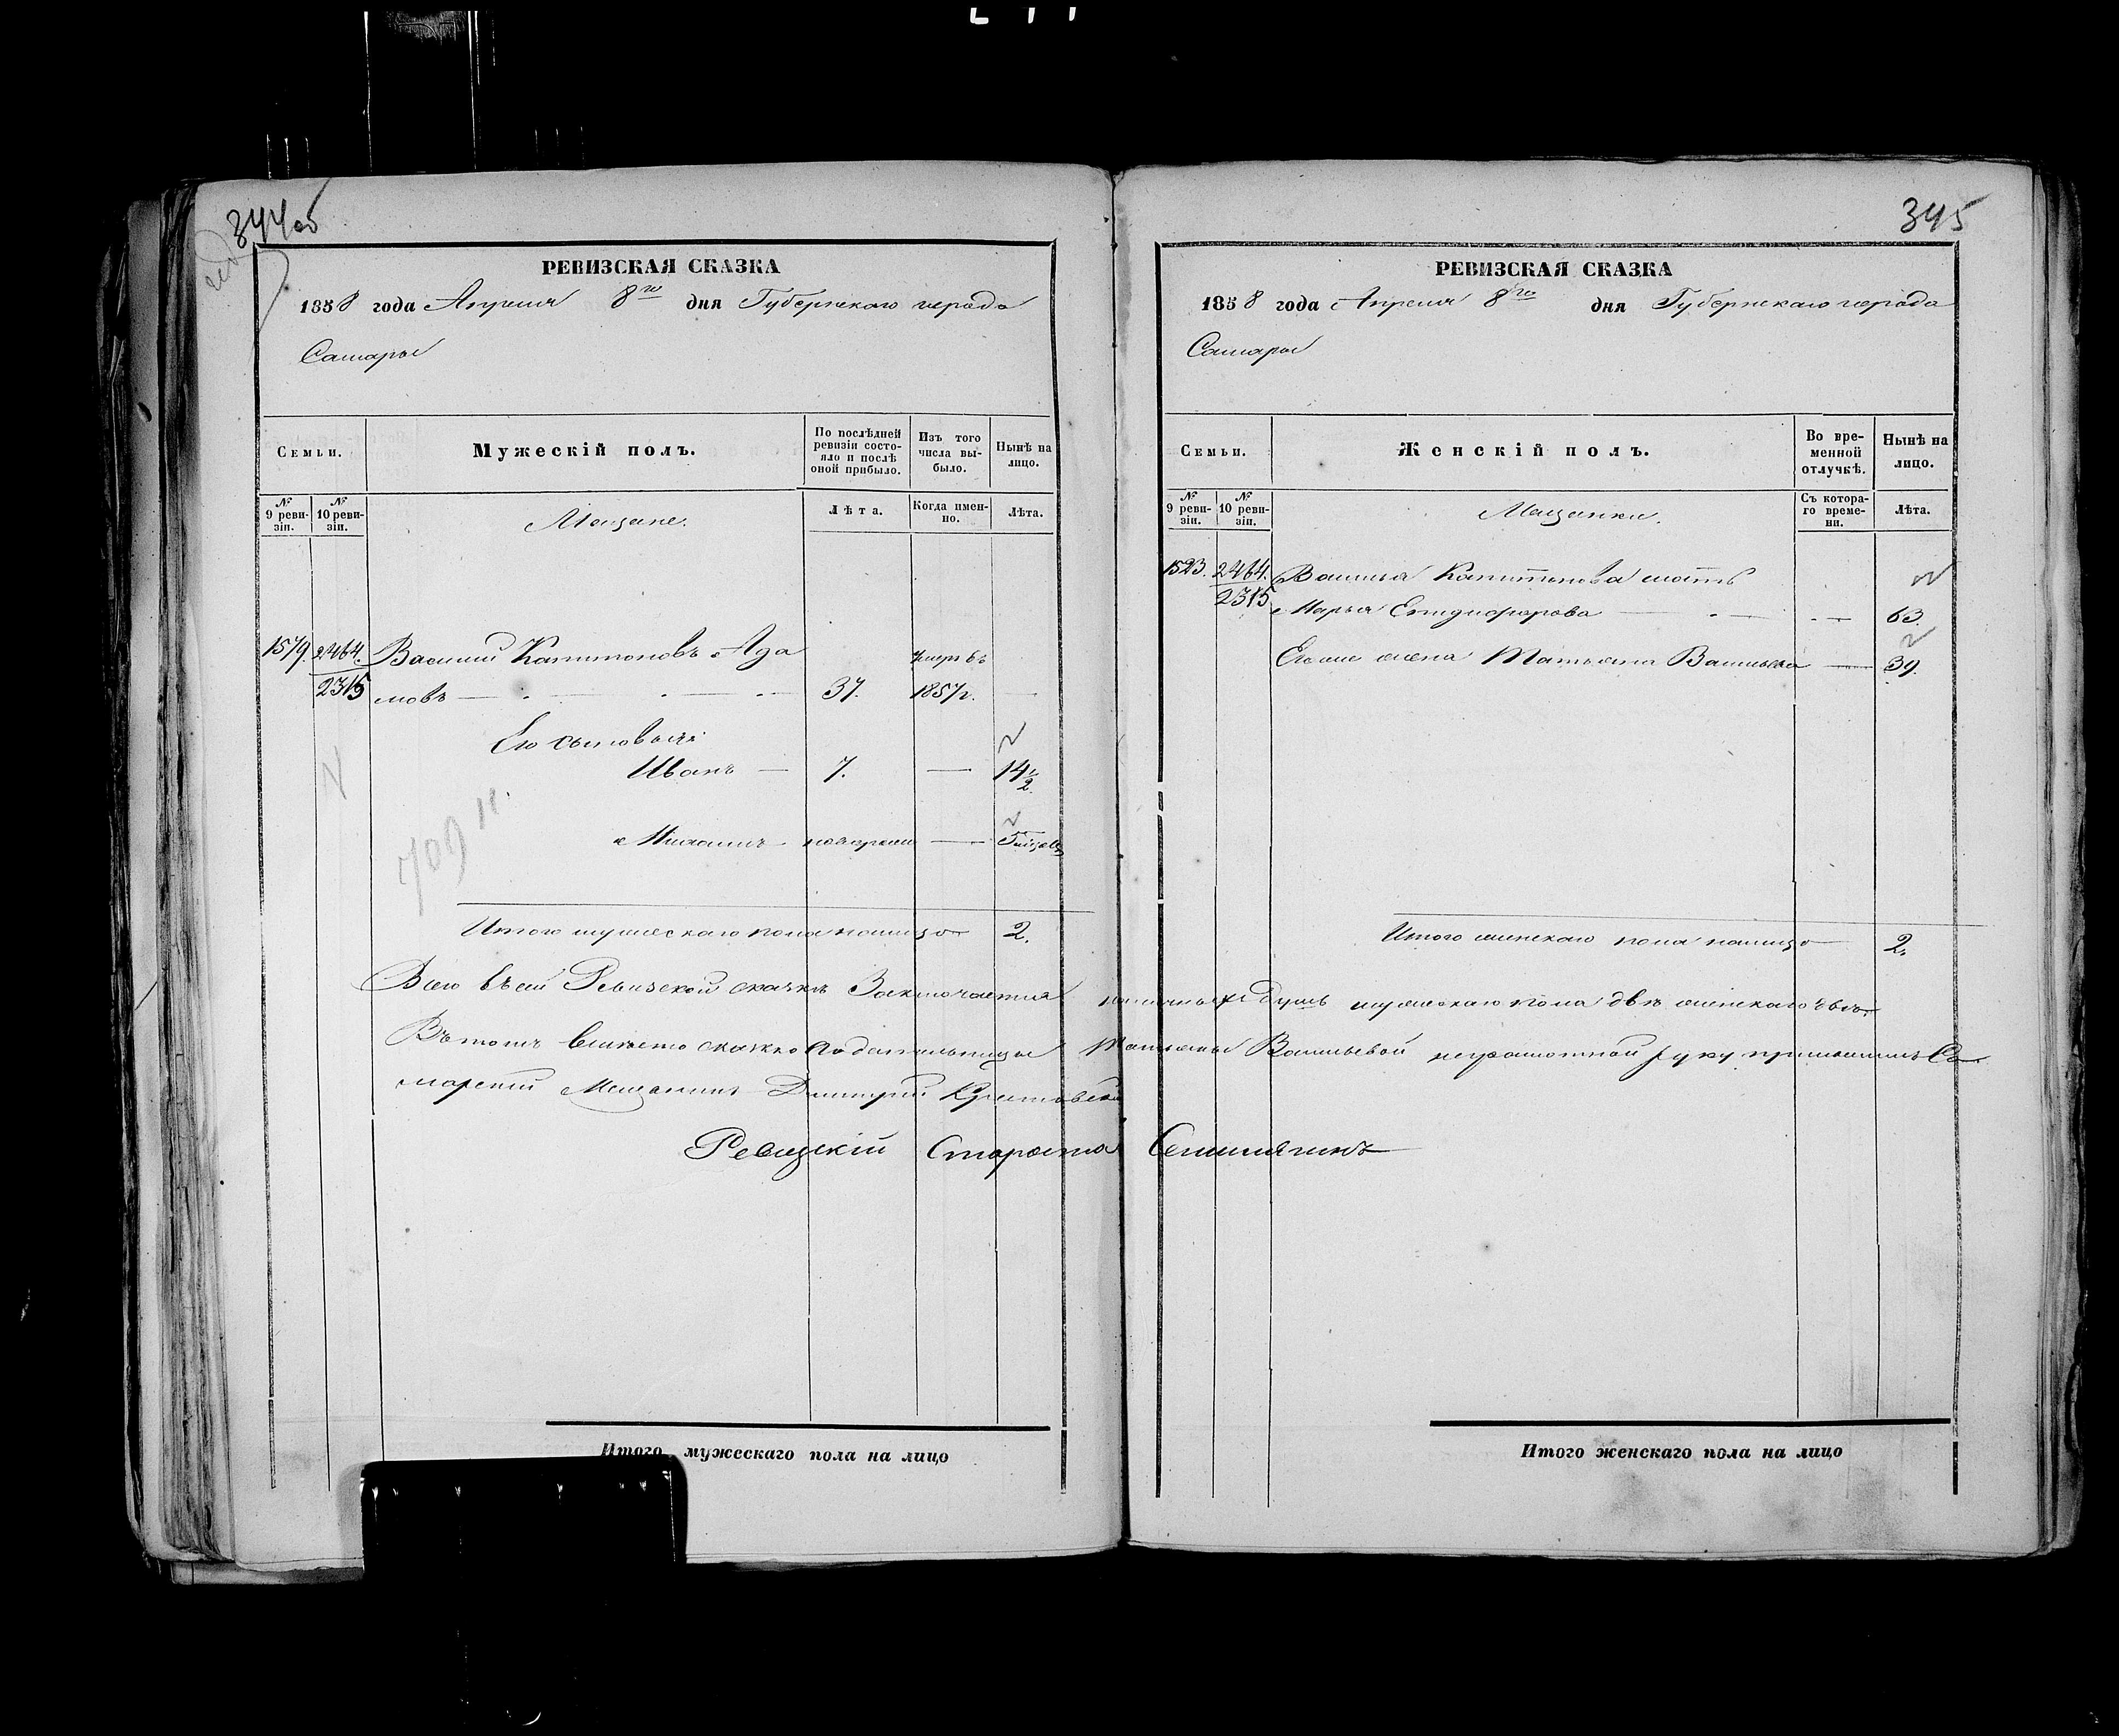 344 об
РЕВИЗСКАЯ СКАЗКА
1858 года Апреля 8го дня Губернскаго города
Самары
Семьи.
Мужескій полъ.
По послѣдней ревизіи состояло и послѣ оной прибыло.
Изъ того числа выбыло.
Нынѣ на лицо.
№ 9 ревизіи.
№ 10 ревизіи.
Мещане.
Лѣта.
Когда именно.
Лѣта.
1579. 2464. Василий Капитоновъ Ада умеръ въ
2315 мовъ 37. 1857г.
Его сыновья:
Иванъ — 7. — 14 1/2
709
Михаилъ —
Итого мужескаго пола налицо 2.
345
РЕВИЗСКАЯ СКАЗКА
1858 года Апреля 8го дня Губернскаго города
Самары
Семьи.
Женскій полъ.
Во временной отлучкѣ.
Нынѣ на лицо.
№ 9 ревизіи.
№ 10 ревизіи.
Мещанки.
Съ котораго времени.
Лѣта.
1523. 2464. Василья Капитонова мать
2315 Марья 63.
Его же жена Татьяна Васильева — 39.
Итого женскаго пола налицо 2.
Всего въ сей Ревизской сказкѣ Заключается наличныхъ Душъ мужескаго пола двѣ женскаго двѣ.
Въ томъ вместо сказкоподательницы Татьяны Васильевой неграмотной руку приложилъ Са
марский Мещанинъ Дмитрий
Ревизскій Староста
Итого мужескаго пола на лицо
Итого женскаго пола на лицо